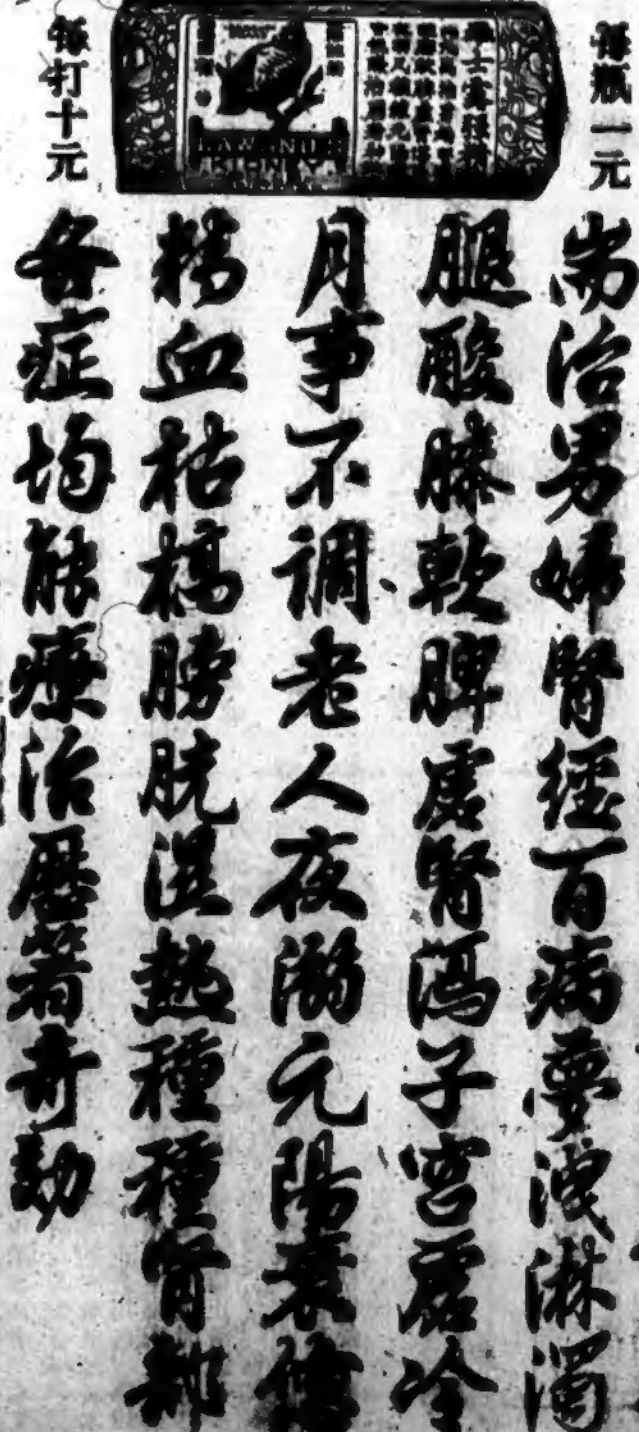 每瓶一元
耑治男婦腎經百病夢洩淋濁
腿酸膝軟脾虛腎瀉子宮虛冷
月事不調老人夜溺元陽衰憊
精血枯槁膀胱濕熱種種腎部
各症均能療治歷著奇効
每打十元